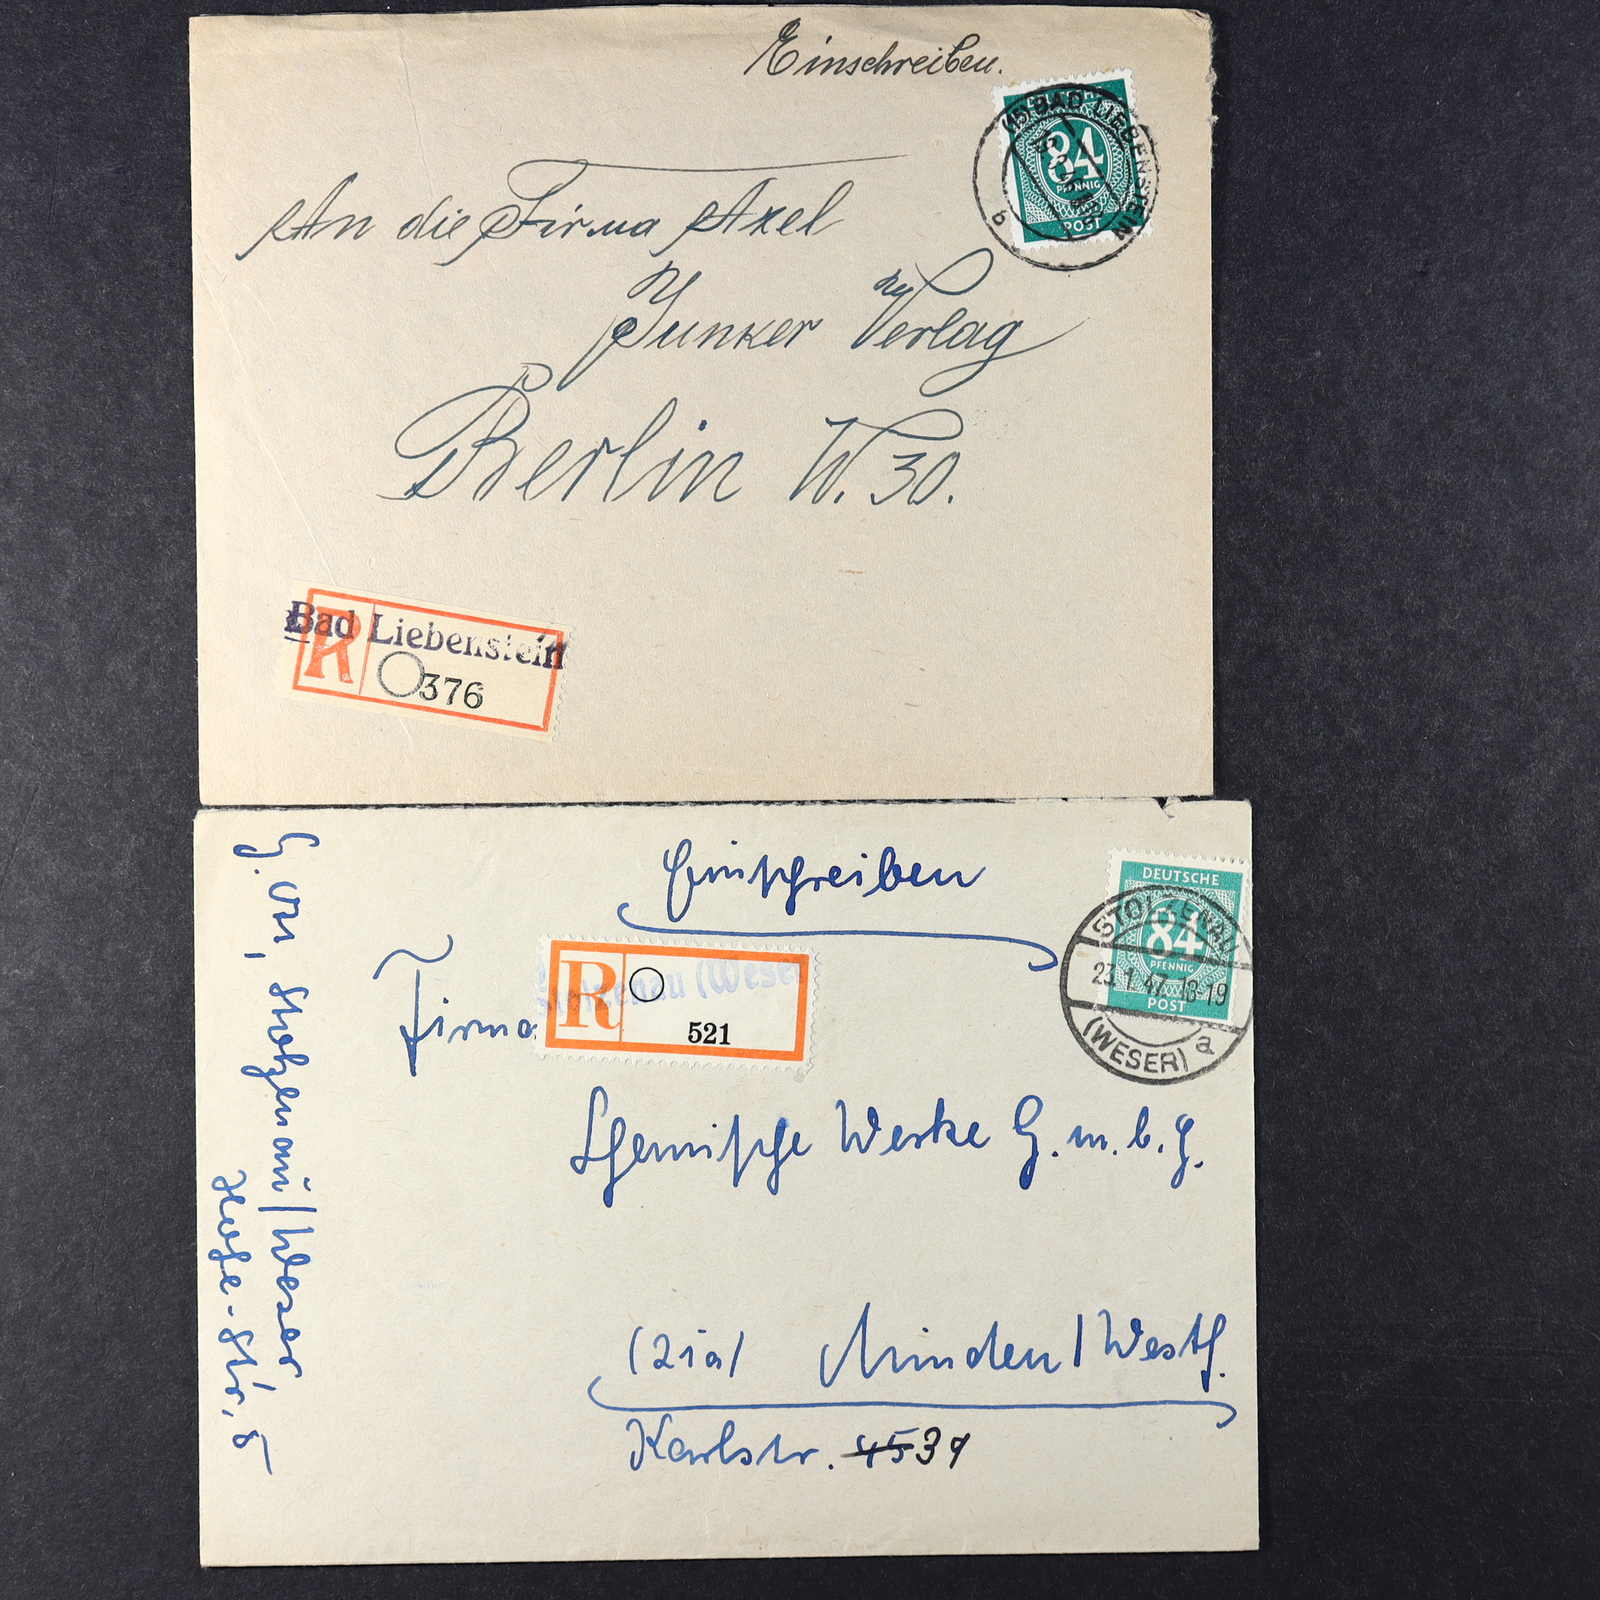 Einschreiben.
DEUTSCHE
84
PFENNIG
POST
(15) BAD LIEBENSTEIN
b
An die Firma Axel
Junker Verlag
Berlin W. 30.
Bad Liebenstein
R
376
Einschreiben
DEUTSCHE
84
PFENNIG
POST
STOLZENAU
23.1.47.18-19
(WESER) a
R
Stolzenau (Weser
521
Firma
Chemische Werke G.m.b.H.
(21a) Minden/Westf.
Karlstr. 45 39
Stolzenau/Weser